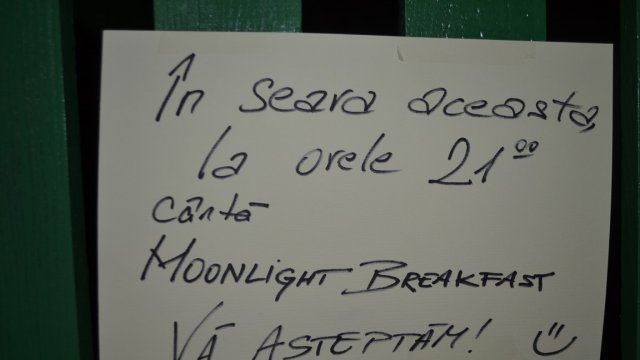 În seara aceasta,
la orele 21⁰⁰
cântă
MOONLIGHT BREAKFAST
VĂ AȘTEPTĂM! :)